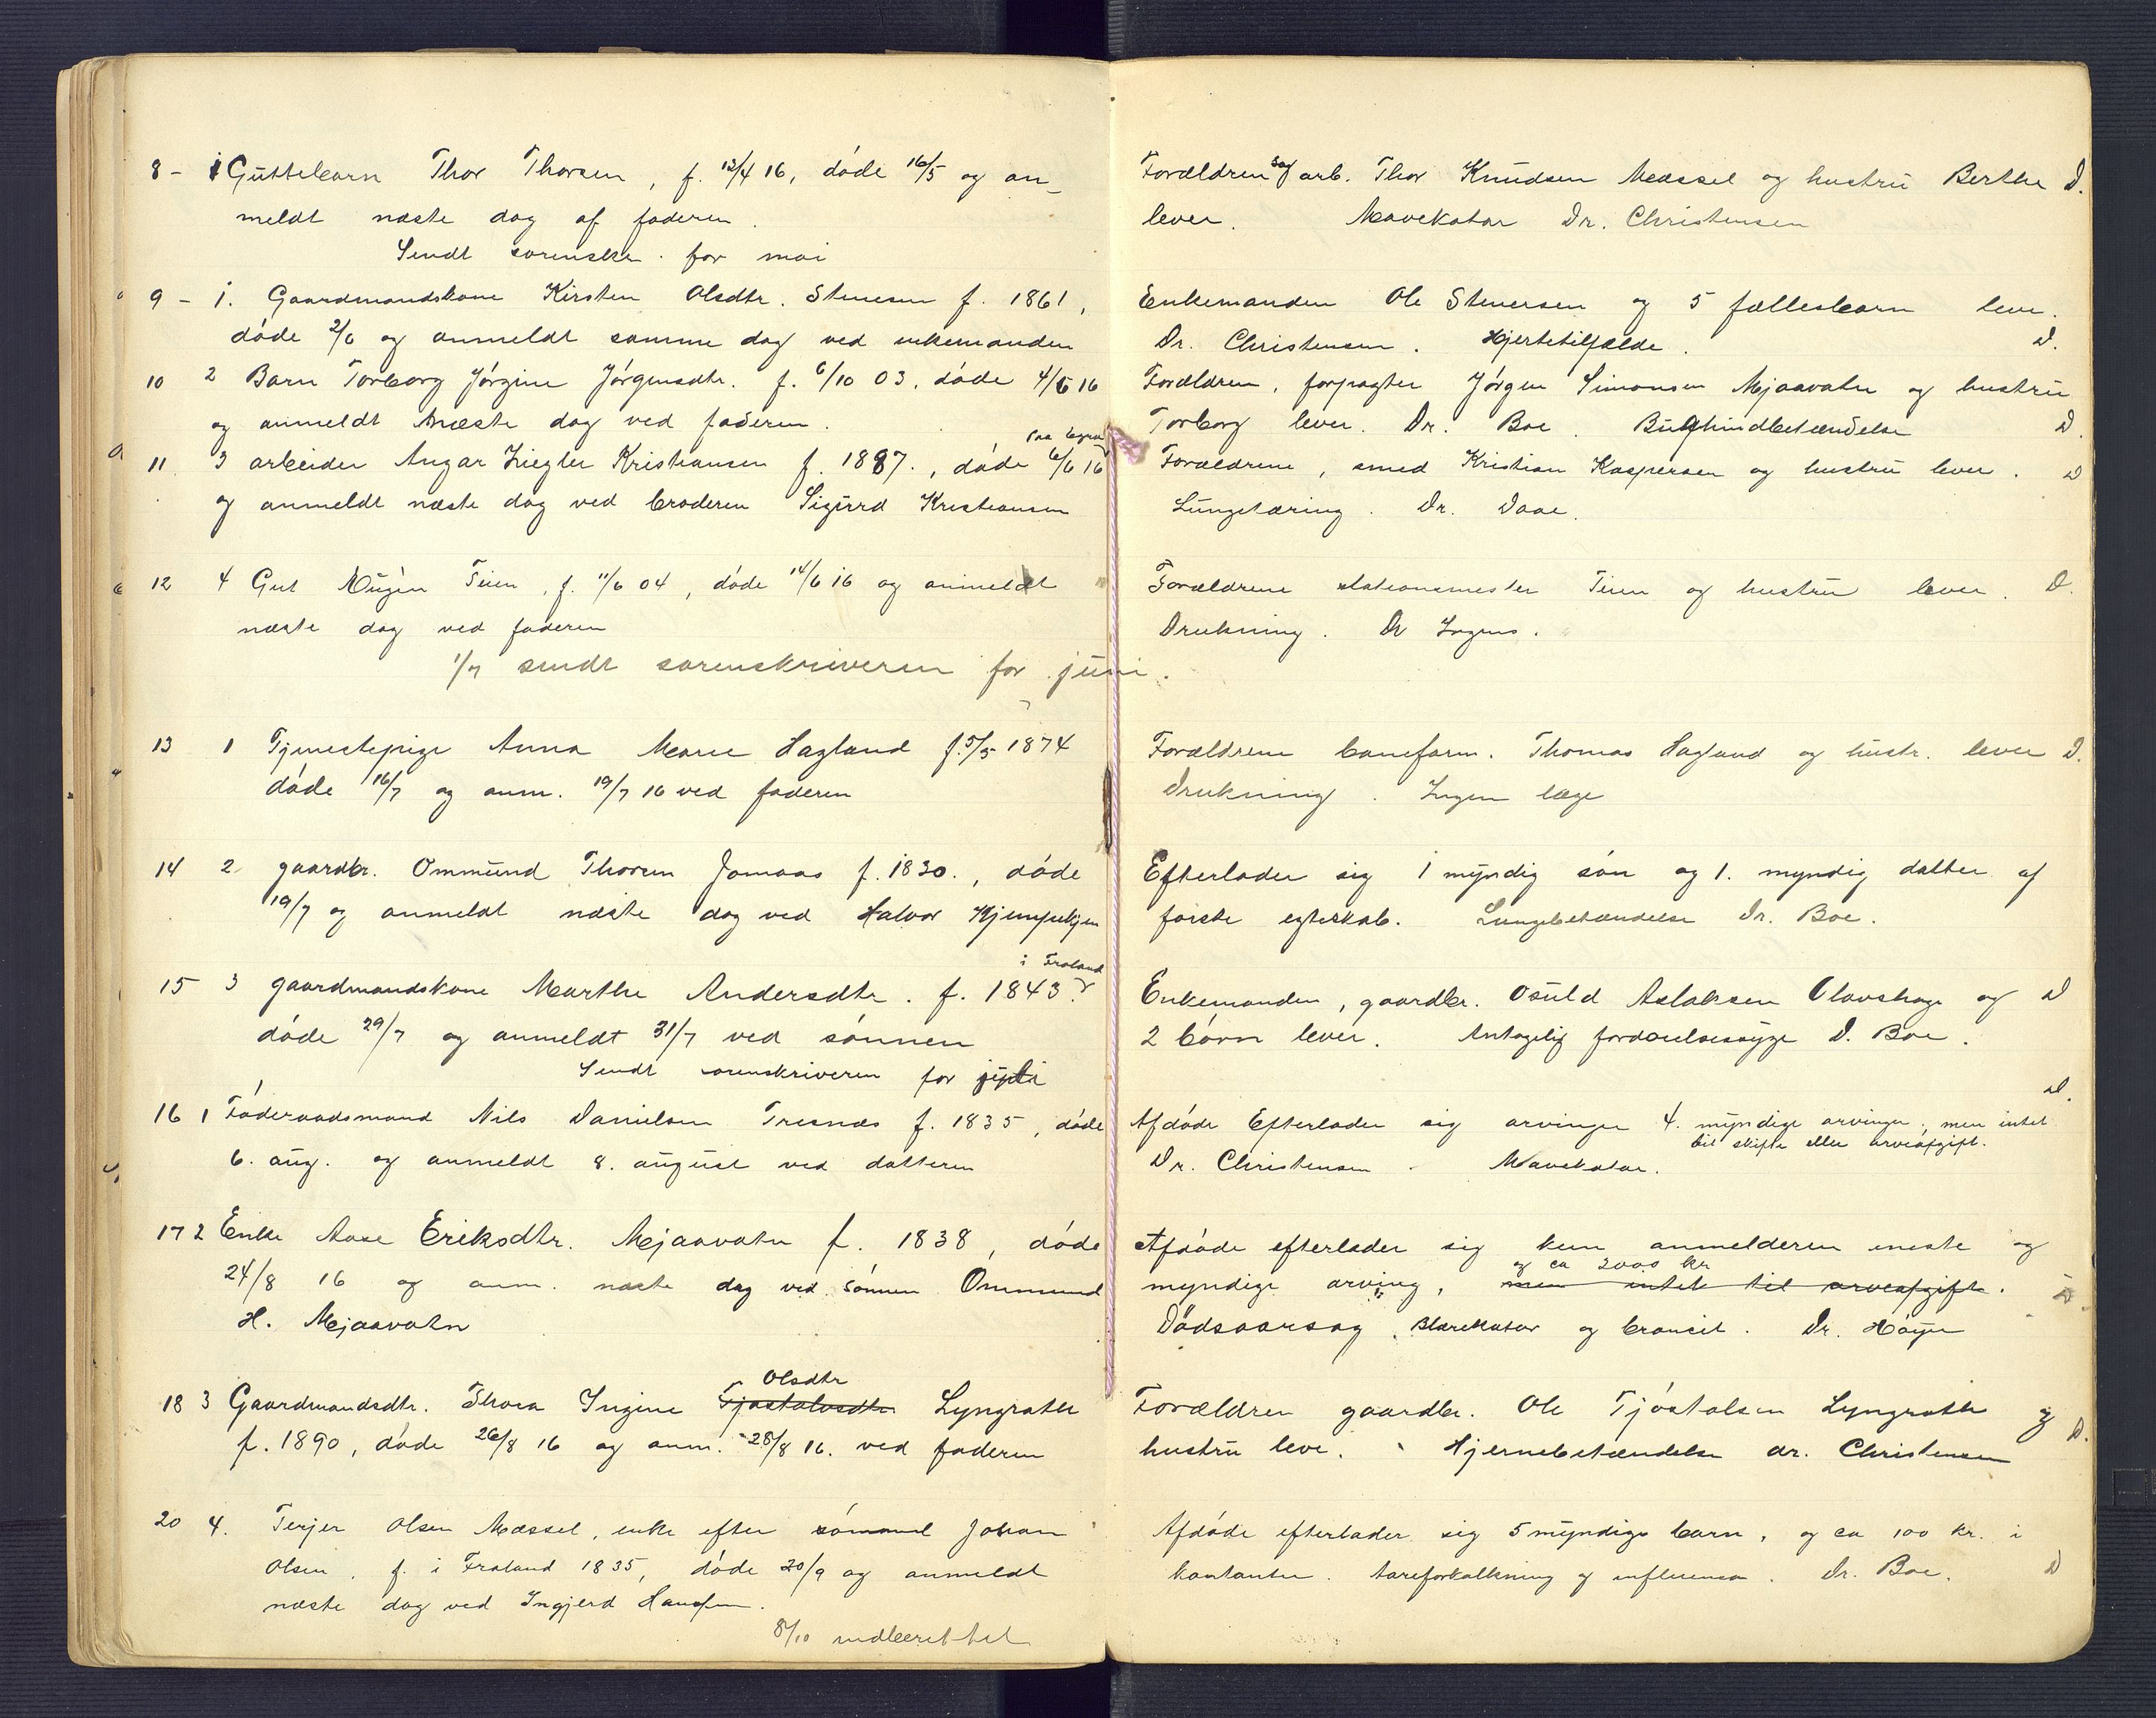 8 - 1 Guttebarn Thor Thorsen, f. 12/4 16, döde 16/5 og an-
meldt næste dag af faderen.
Sendt sorenskr. for mai
9 - 1. Gaardmandskone Kirsten Olsdtr. Stenersen f. 1861,
döde 2/6 og anmeldt samme dag ved enkemanden
10 2 Barn Torborg Jörgine Jörgensdtr. f. 6/10 03, döde 4/6 16
og anmeldt næste dag ved faderen.
11 3 arbeider Angar Ziegler Kristiansen f. 1887., döde 6/6 16
og anmeldt næste dag ved broderen Sigurd Kristiansen
12 4 Gut Eugén Teien, f. 11/6 04, döde 14/6 16 og anmeldt
næste dag ved faderen
1/7 sendt sorenskriveren for juni.
13 1 Tjenestepige Anna Marie Hagland f. 5/5 1874
döde 16/7 og anm. 19/7 16 ved faderen
14 2 gaardbr. Ommund Thorsen Jomaas f. 1830., döde
19/7 og anmeldt næste dag ved Halvor
i Froland
15 3 gaardmandskone Marthe Andersdtr. f. 1843.
döde 29/7 og anmeldt 31/7 ved sönnen
Sendt sorenskriveren for juli
16 1 Föderaadsmand Nils Danielsen Tresnæs f. 1835, döde
6. aug. og anmeldt 8. august ved datteren
17 2 Enke Aase Eriksdtr. Mjaavatn f. 1838, döde
24/8 16 og anm. næste dag ved sönnen Ommund
H. Mjaavatn
Olsdtr
18 3 Gaardmandsdtr. Thora Ingine Tjostolvsdtr. Lyngroth
f. 1890, döde 26/8 16 og anm. 28/8 16. ved faderen
20 4. Terjer Olsen Mæssel, enke efter tömmerml Johan
Olsen, f. i Froland 1835, döde 20/9 og anmeldt
næste dag ved Ingjerd Hansen.
8/10 indberettet
Forældren sag arb. Thor Knudsen Mæssel og hustru Berthe D.
lever. Mavekatar Dr. Christensen
Enkemanden Ole Stenersen og 5 fællesbarn leve.
Dr. Christensen. Hjertetilfælde. D.
Forældren, forpagter Jörgen Simonsen Mjaavatn og hustru
Torborg lever. Dr. Boe. Bughindbetændelse D.
Forældrene, smed Kristian Kaspersen og hustru lever. D
Lungetæring. Dr. Daae.
Forældrene stationsmester Teien og hustru lever. D.
Drukning. Dr Ingens.
Forældrene baneform. Thomas Hagland og hustr. lever D.
Drukning. Ingen læge
Efterlader sig 1 myndig sön og 1. myndig datter af
förste egteskab. Lungebetændelse Dr. Boe.
Enkemanden, gaardbr. Osuld Aslaksen Olavshage og D
2 börn lever. Antagelig fordöielsessyge D. Boe.
D.
Afdöde Efterlader sig arvinger 4. myndige arvinger, men intet
til skifte eller arveafgift.
Dr. Christensen. Mavekatar.
Afdöde efterlader sig kun anmelderen eneste og
og ca 2000 kr
myndige arving, men intet til arveafgift. D.
Dödsaarsag, Blærekatar og broncit. Dr. Höyer
Forældren gaardbr. Ole Tjöstolsen Lyngroth og
hustru leve. Hjernebetændelse dr. Christensen D.
Afdöde efterlader sig 5 myndige barn, og ca 100 kr. i
kontanter. Aareforkalkning og influensa. Dr. Boe. D